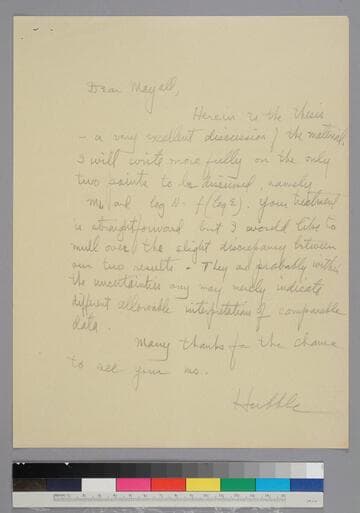 Dear Mayall,
Herein is the thesis
- a very excellent discussion of the material.
I will write more fully on the only
two points to be discussed, namely
and log N = f(log E). Your treatment
is straightforward but I would like to
mull over the slight discrepancy between
our two results. They are probably within
the uncertainties and may merely indicate
different allowable interpretations of comparable
data.
Many thanks for the chance
to see your ms.
Hubble